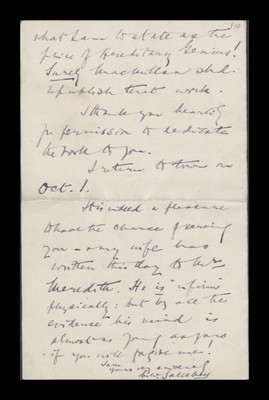 what I am to state as the
price of Hereditary Genius!
Surely Macmillan shd.
republish that work.
I thank you heartily
for permission to dedicate
the book to you.
I return to town on
Oct. 1.
It is indeed a pleasure
to have the chance of seeing
you & my wife has
written this day to Mrs
Meredith. He is infirm
physically: but by all the
evidence his mind is
almost as young as yours
- if you will forgive me!
I am
yours very sincerely
C. W. Saleeby